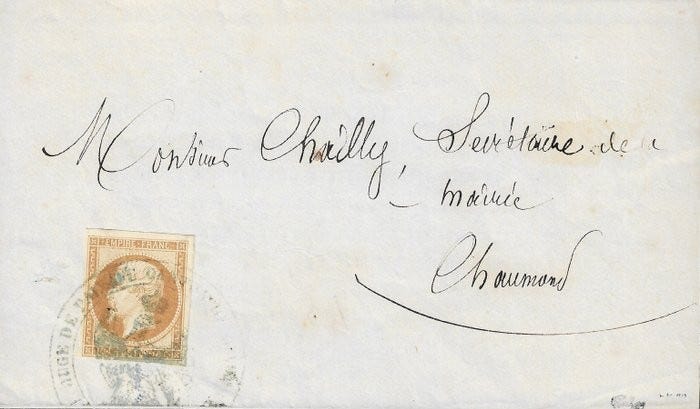 Monsieur Chailly, Secrétaire de la
mairie
Chaumond
EMPIRE FRANC.
AUGE DE